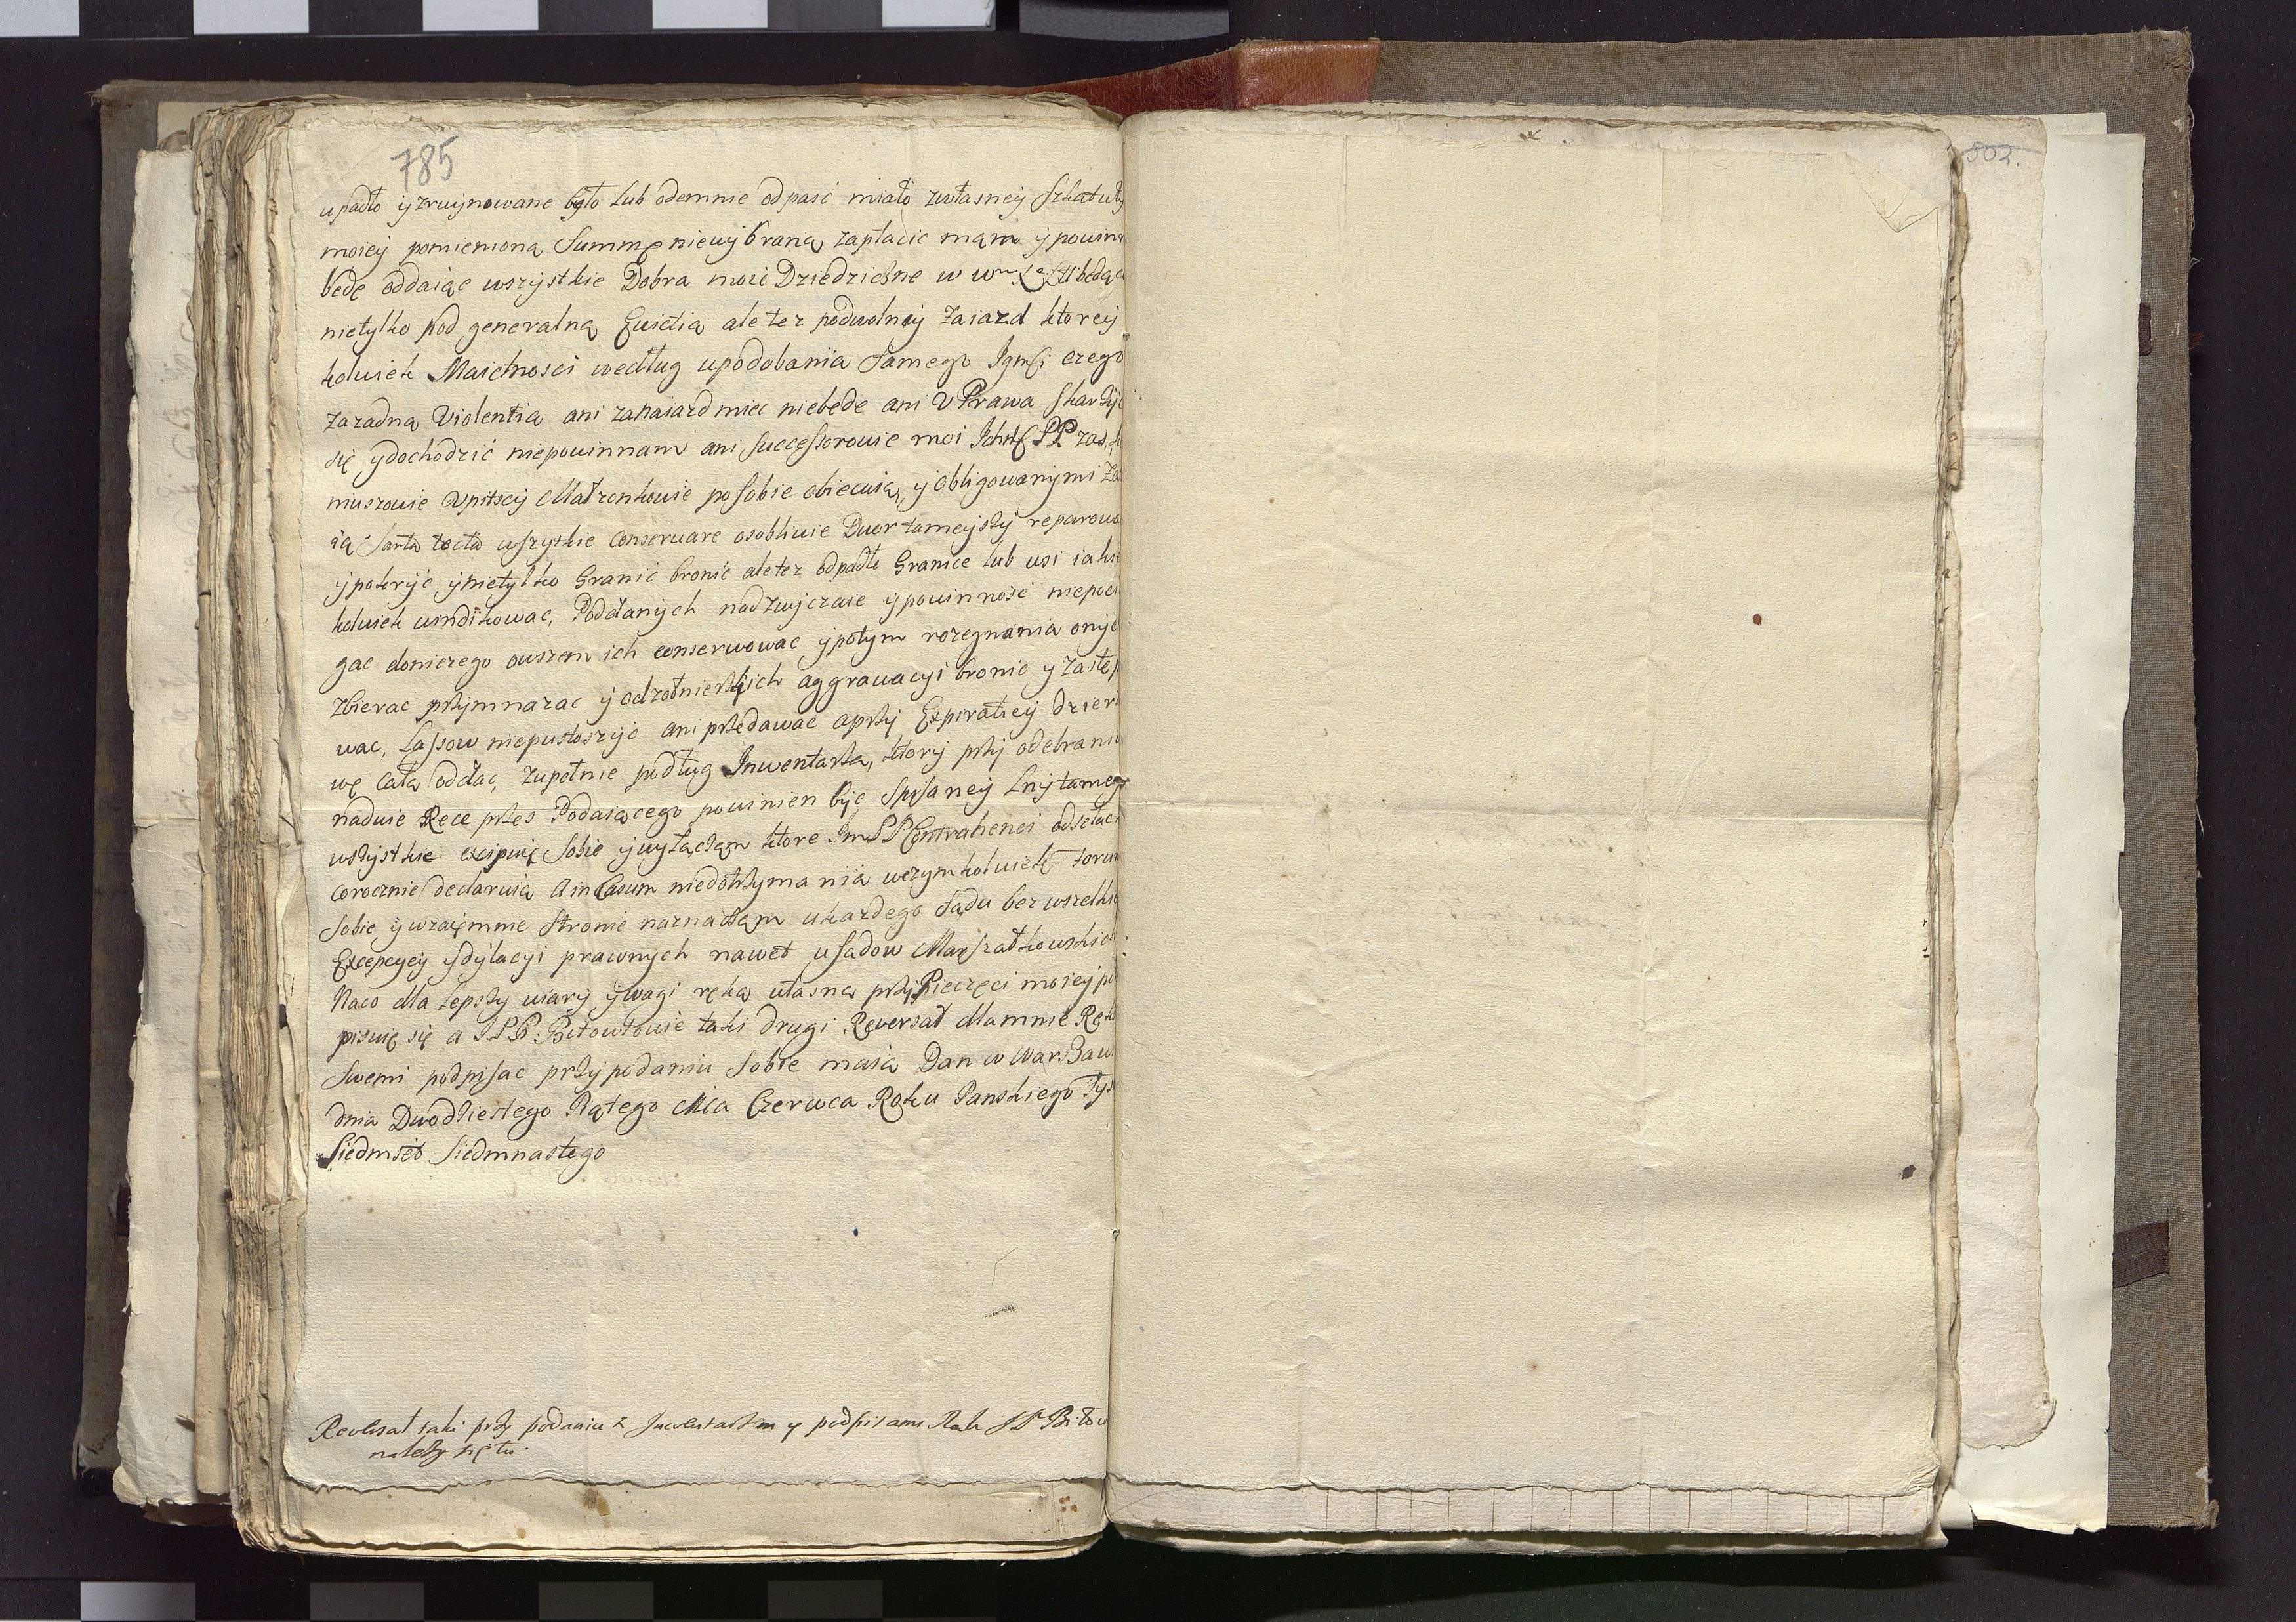 785
802.
upadło y zruynowane było lub odemnie odpaść miało zwłasney Szkatuły
moiey pomienioną Summę niewybraną zapłacic mam y powinn
będę oddaiąc wszystkie Dobra moie Dziedziczne w będąc
nietylko pod generalną Ewictią ale tez podwolny zaiazd ktorey
kolwiek Maiętnosci według upodobania Samego czego
zazadną Violentią ani zanaiazd miec niebędę ani V Prawa Skarżyć
się y dochodzić niepowinnam ani Successorowie moi zaś
niuszowie Upitscy Małzonkowie po Sobie obiecuią, y obligowanymi
ią Sarta tecta wszytkie conservare osobliwie Dwor tameyszy reparowa
y pokryć y nietylko Granić bronić ale tez odpadłe Granice lub wsi iakie
kolwiek windikowac, Poddanych nad zwyczaie y powinność niepocią
gac doniczego owszem ich conserwowac y potym rozegnania onych
zbierac przymnazac y odzołnierskich aggrawacyi bronic y zastęp
wac, Lassow niepustoszyć ani przedawać a przy Expiratiey dzierz
wę całą oddac, zupełnie podług Inwentarza, ktory przy odebraniu
nadwie Ręce przes Podaiącego powinien być Spisaney Lny tamego
wszystkie excipuię Sobie y wyłączam ktore Im PP Contrahenci odsełac
corocznie declaruią A in Casum niedotrzymania wczymkolwiek forum
Sobie y wzaięmnie Stronie naznaczam ukazdego Sądu bez wszelkich
Excepcyey y dylacyi prawnych nawet u Sadow Marszałkowskich
Naco dla lepszy wiary y wagi ręką własną przy Pieczęci moiey pod
pisuię się a Bitowtowie taki drugi Rewersał dlamnie Ręka
Swemi podpisac przy podaniu Sobie maią Dan w Warszaw
dnia Dwodziestego Piątego Mca Czerwca Roku Panskiego Tys
Siedmset Siedmnastego
Rewersał taki przy podaniu z Inwentarzem y podpisami Rąk Bitow
należy się tu.